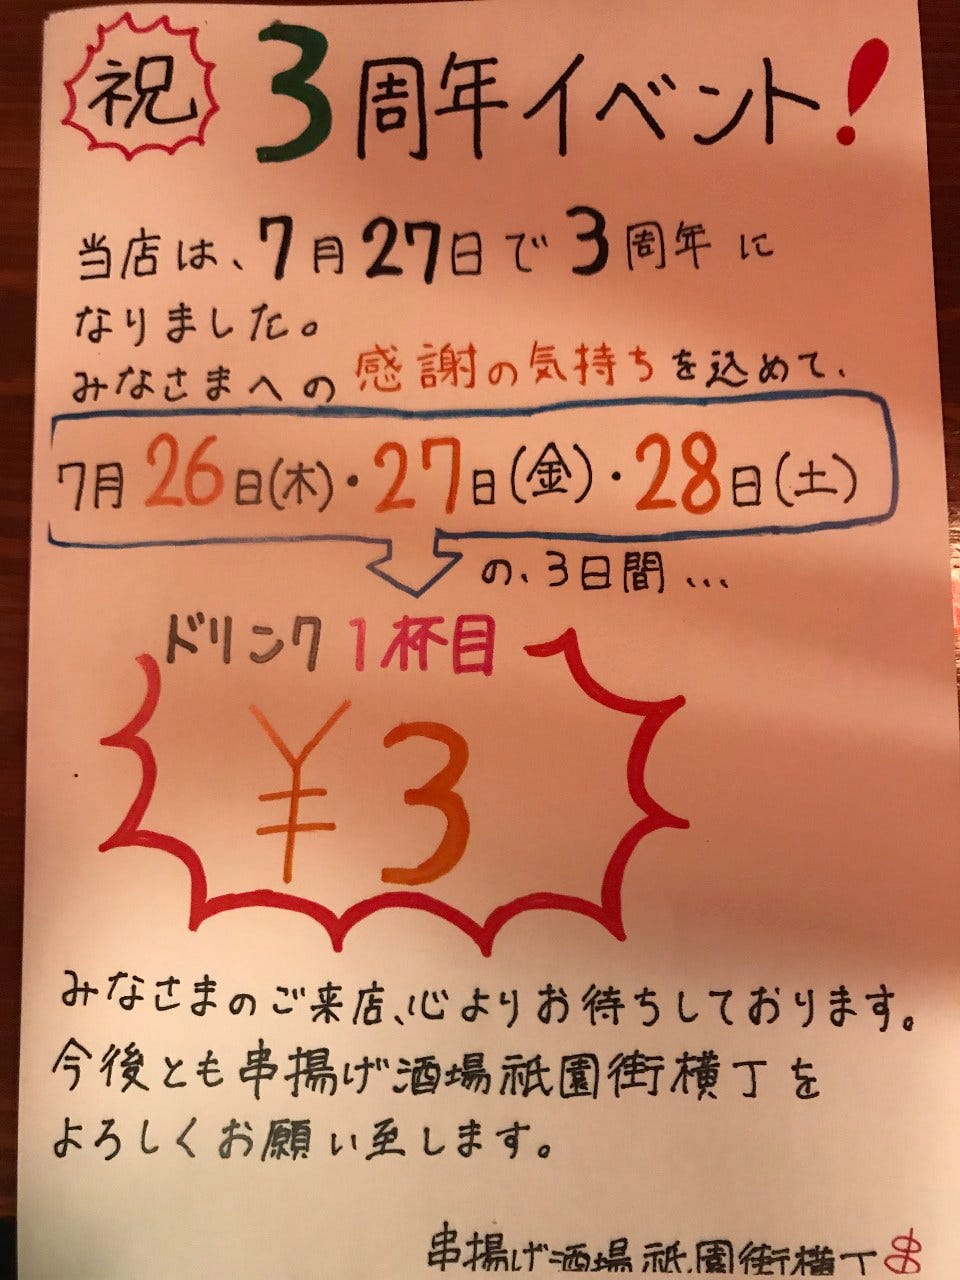 祝 3周年イベント!
当店は、7月27日で3周年に
なりました。
みなさまへの感謝の気持ちを込めて、
7月26日(木)・27日(金)・28日(土)
の、3日間...
ドリンク1杯目
¥3
みなさまのご来店、心よりお待ちしております。
今後とも串揚げ酒場祇園街横丁を
よろしくお願い至します。
串揚げ酒場祇園街横丁